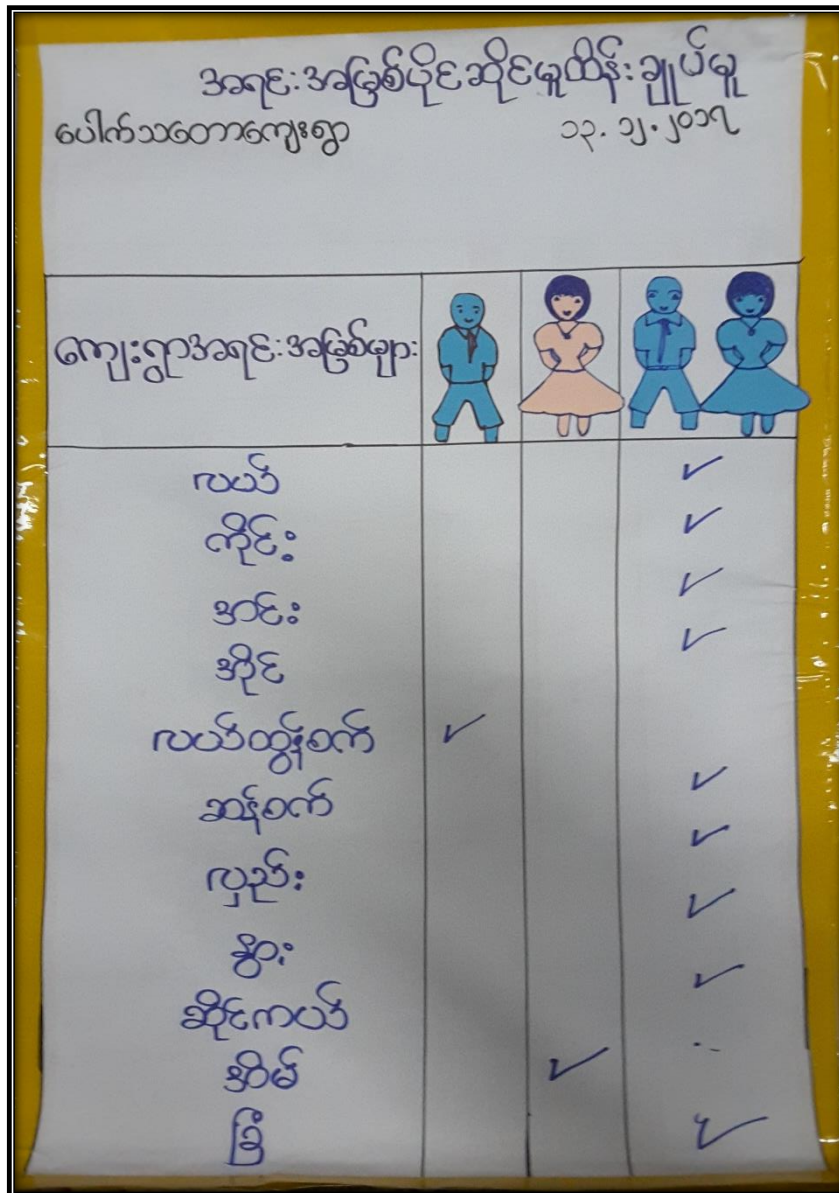 အရင်းအမြစ်ပိုင်ဆိုင်မှုထိန်းချုပ်မှု
ပေါက်သတောကျေးရွာ ၁၃.၁၂.၂၀၁၇
ကျေးရွာအရင်းအမြစ်များ
လယ်
ကိုင်း
အင်း
အိုင်
လယ်ထွန်စက်
ဆန်စက်
လှည်း
နွား
ဆိုင်ကယ်
အိမ်
ခြံ